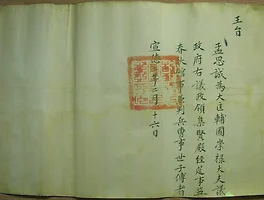 王旨
孟思誠爲大匡輔國崇祿大夫議
政府右議政領集賢殿經筵事監
春秋館事兼判兵曹事世子傅者
宣德 年二月十六日